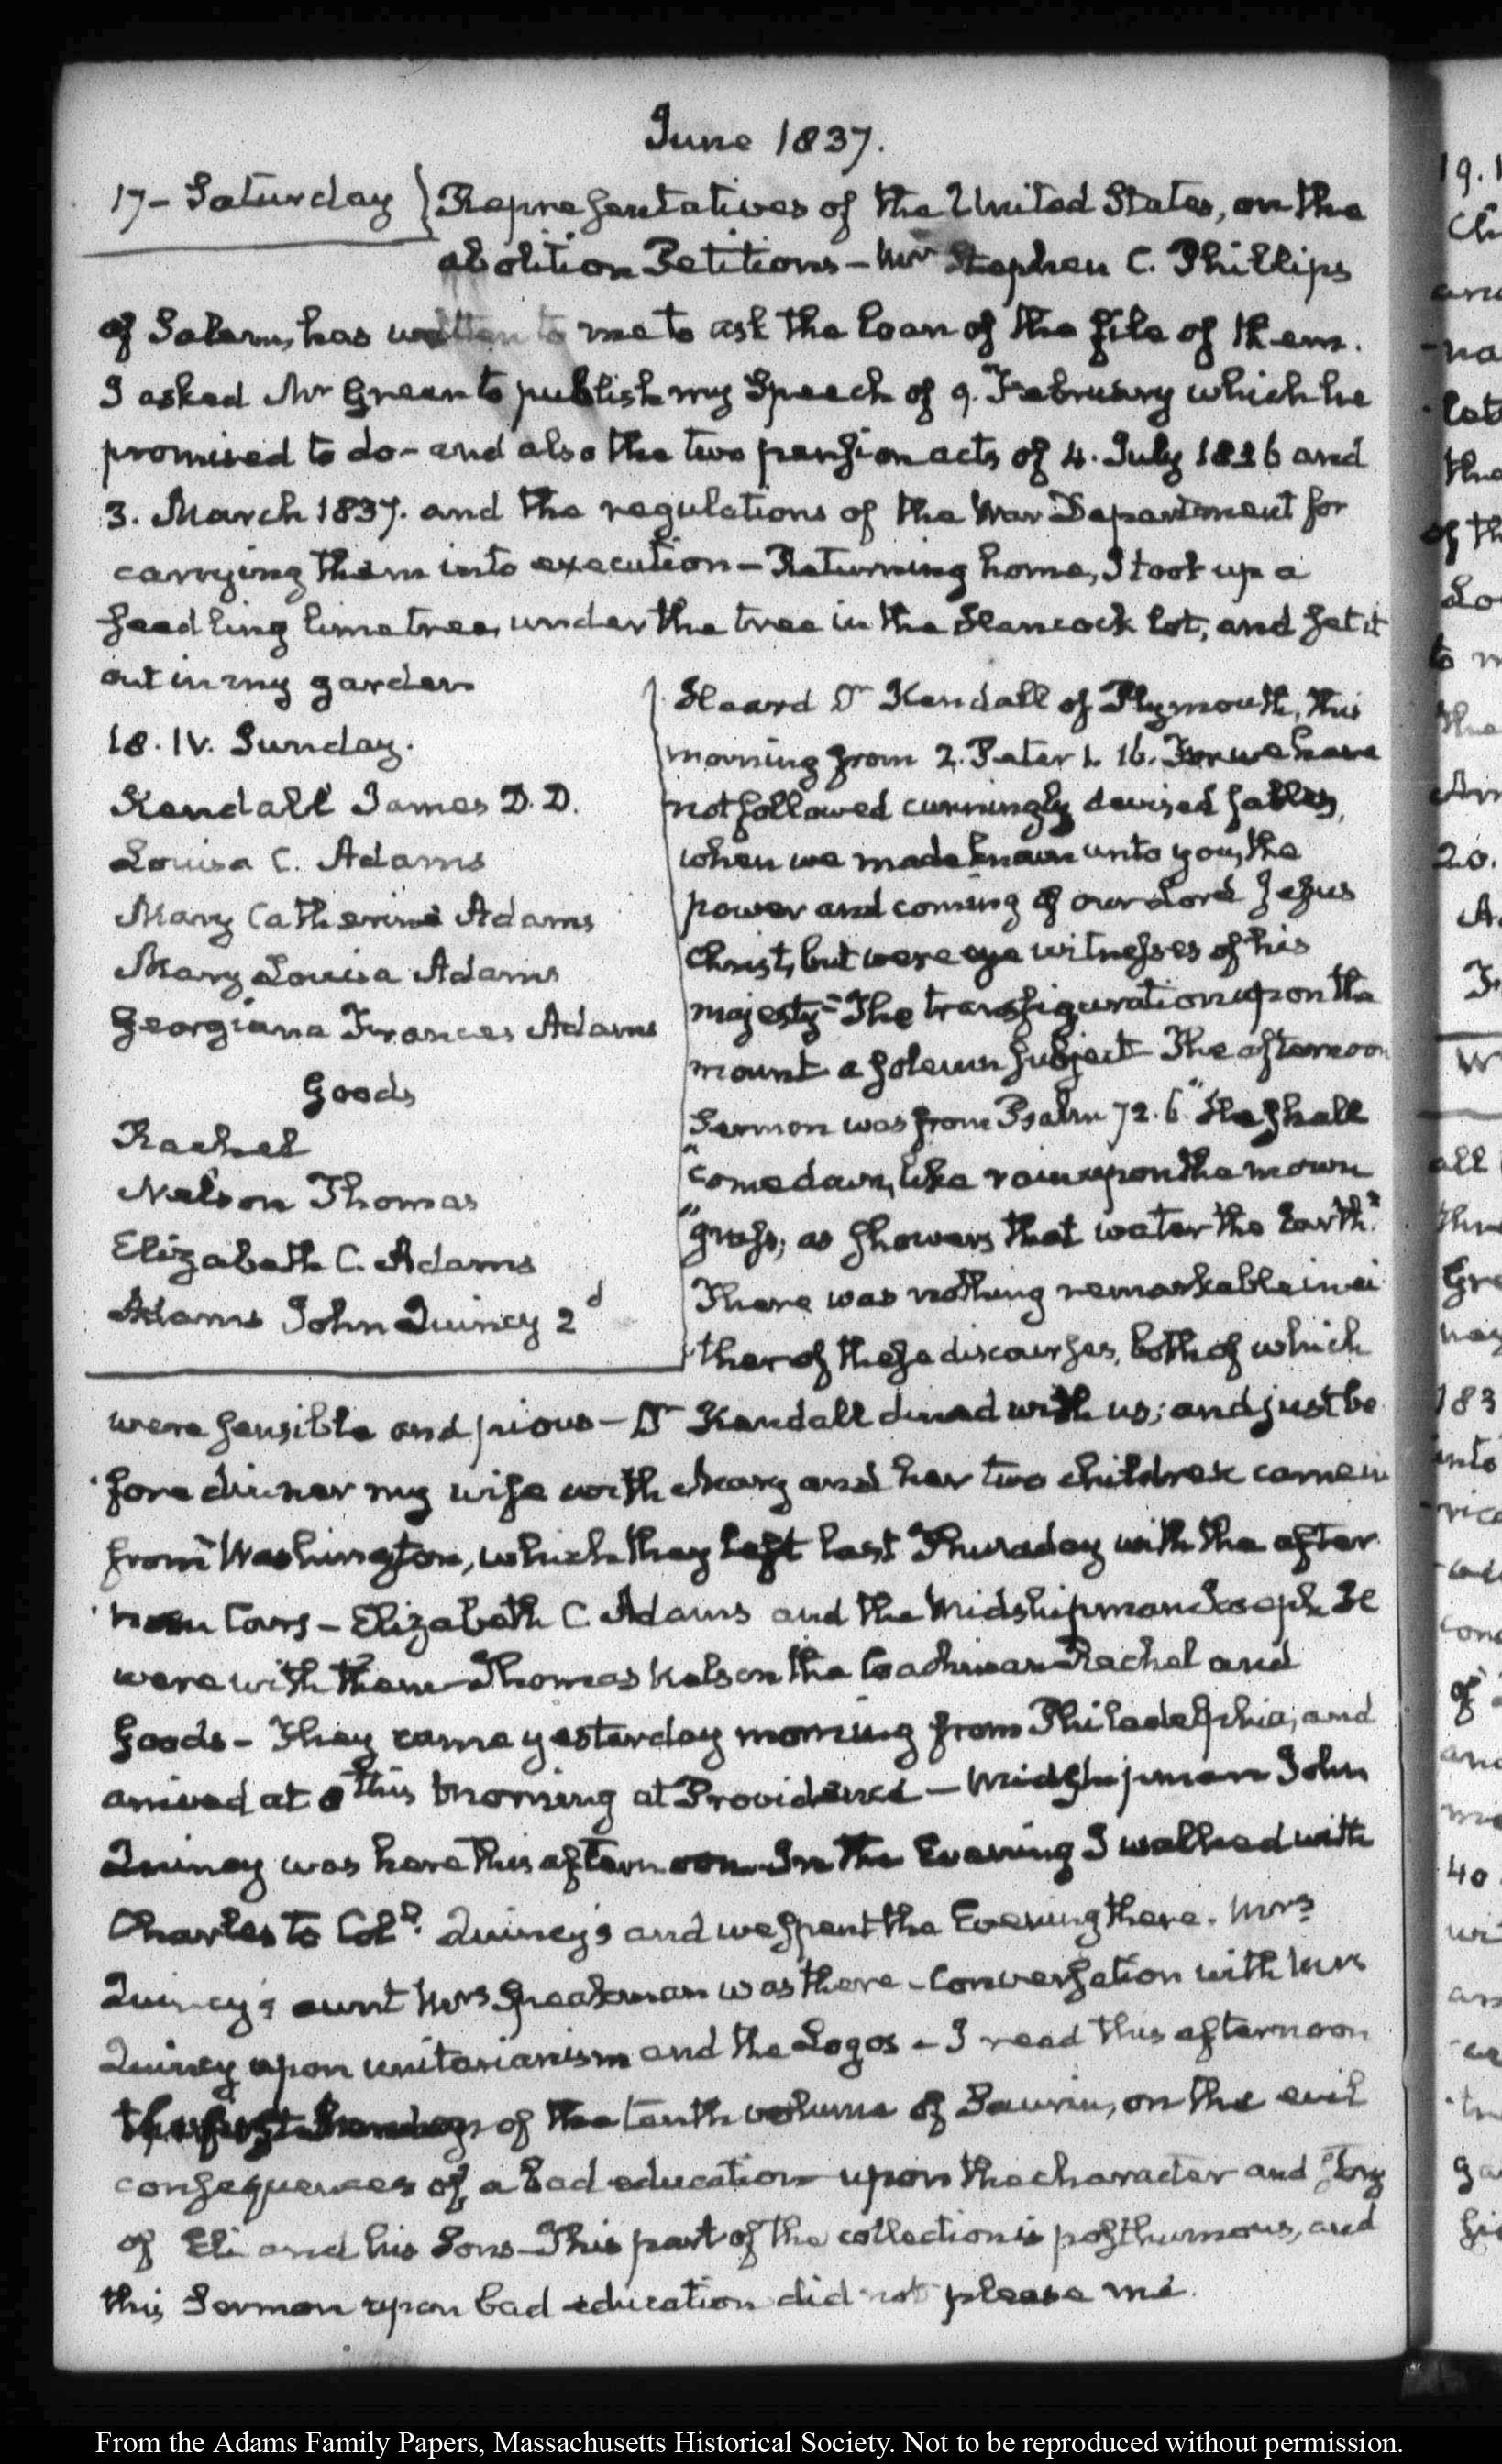 June 1837.
17 - Saturday
Representatives of the United States, on the
abolition Petitions - Mr Stephen C. Phillips
of Salem, has written to me to ask the loan of the file of them.
I asked Mr Green to publish my Speech of 9. February which he
promised to do - and also the two pension acts of 4. July 1836 and
3. March 1837. and the regulations of the War Department for
carrying them into execution - Returning home, I took up a
seedling lime tree, under the tree in the Hancock lot, and set it
out in my garden
18. IV. Sunday.
Kendall James D.D.
Louisa C. Adams
Mary Catherine Adams
Mary Louisa Adams
Georgiana Frances Adams
Goods
Rachel
Nelson Thomas
Elizabeth C. Adams
Adams John Quincy 2d
Heard Dr Kendall of Plymouth, this
morning from 2. Peter 1. 16. For we have
not followed cunningly devised fables,
when we made known unto you, the
power and coming of our Lord Jesus
Christ, but were eye witnesses of his
majesty" The transfiguration upon the
mount a solemn subject - The afternoon
Sermon was from Psalm 72. 6. "He shall
"come down, like rain upon the mown
"grass; as showers that water the Earth."
There was nothing remarkable in ei
ther of these discourses, both of which
were sensible and pious - Dr Kendall dined with us; and just be
fore dinner my wife with Mary and her two children came in
from Washington, which they left last Thursday with the after
noon Cars - Elizabeth C. Adams and the Midshipman Joseph H
were with them - Thomas Nelson the Coachman Rachel and
Goods - They came yesterday morning from Philadelphia, and
arrived at this morning at Providence - Midshipman John
Quincy was here this afternoon In the Evening I walked with
Charles to Coll. Quincy's and we spent the Evening there. Mrs
Quincy's aunt Mrs Speakman was there - Conversation with Mrs
Quincy upon unitarianism and the Logos - I read this afternoon
the first of the tenth volume of Saurin, on the evil
consequences of a bad education upon the character and
of Eli and his Sons - This part of the collection is posthumous, and
this Sermon upon bad education did not please me.
From the Adams Family Papers, Massachusetts Historical Society. Not to be reproduced without permission.